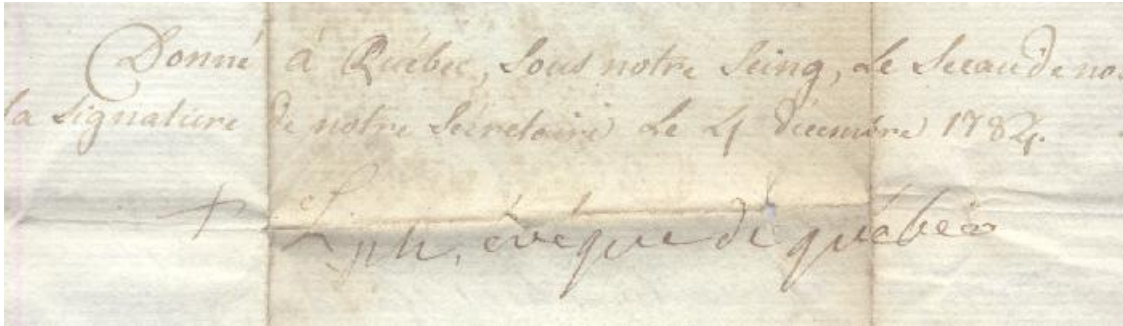 Donné à Québec, Sous notre Seing, Le Sceau de no
la Signature de notre Sécretaire Le 4 décembre 1784.
+ L. ph, évêque de québec